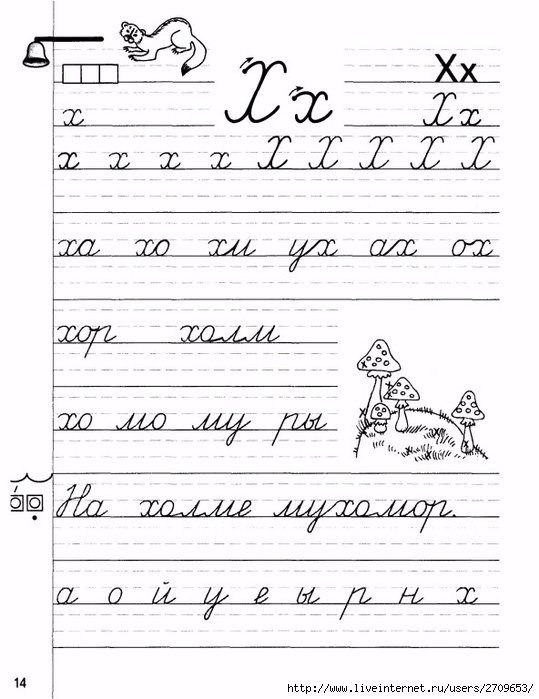 Х х Хх
х Х х
х х х х Х Х Х Х Х
ха хо хи ух ах ох
хор холм
хо мо му ры
На холме мухомор.
а о й у е ы р н х
14
http://www.liveinternet.ru/users/2709653/